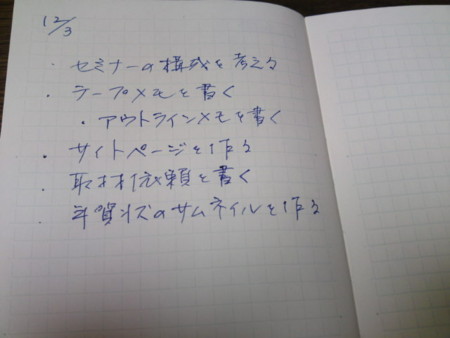 12/3
・セミナーの構成を考える
・テープメモを書く
・アウトラインメモを書く
・サイトページを作る
・取材依頼を書く
・年賀状のサムネイルを作る